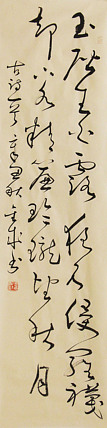 玉階生白露夜久侵羅襪
却下水精簾玲瓏望秋月
古詩一首 秋 書